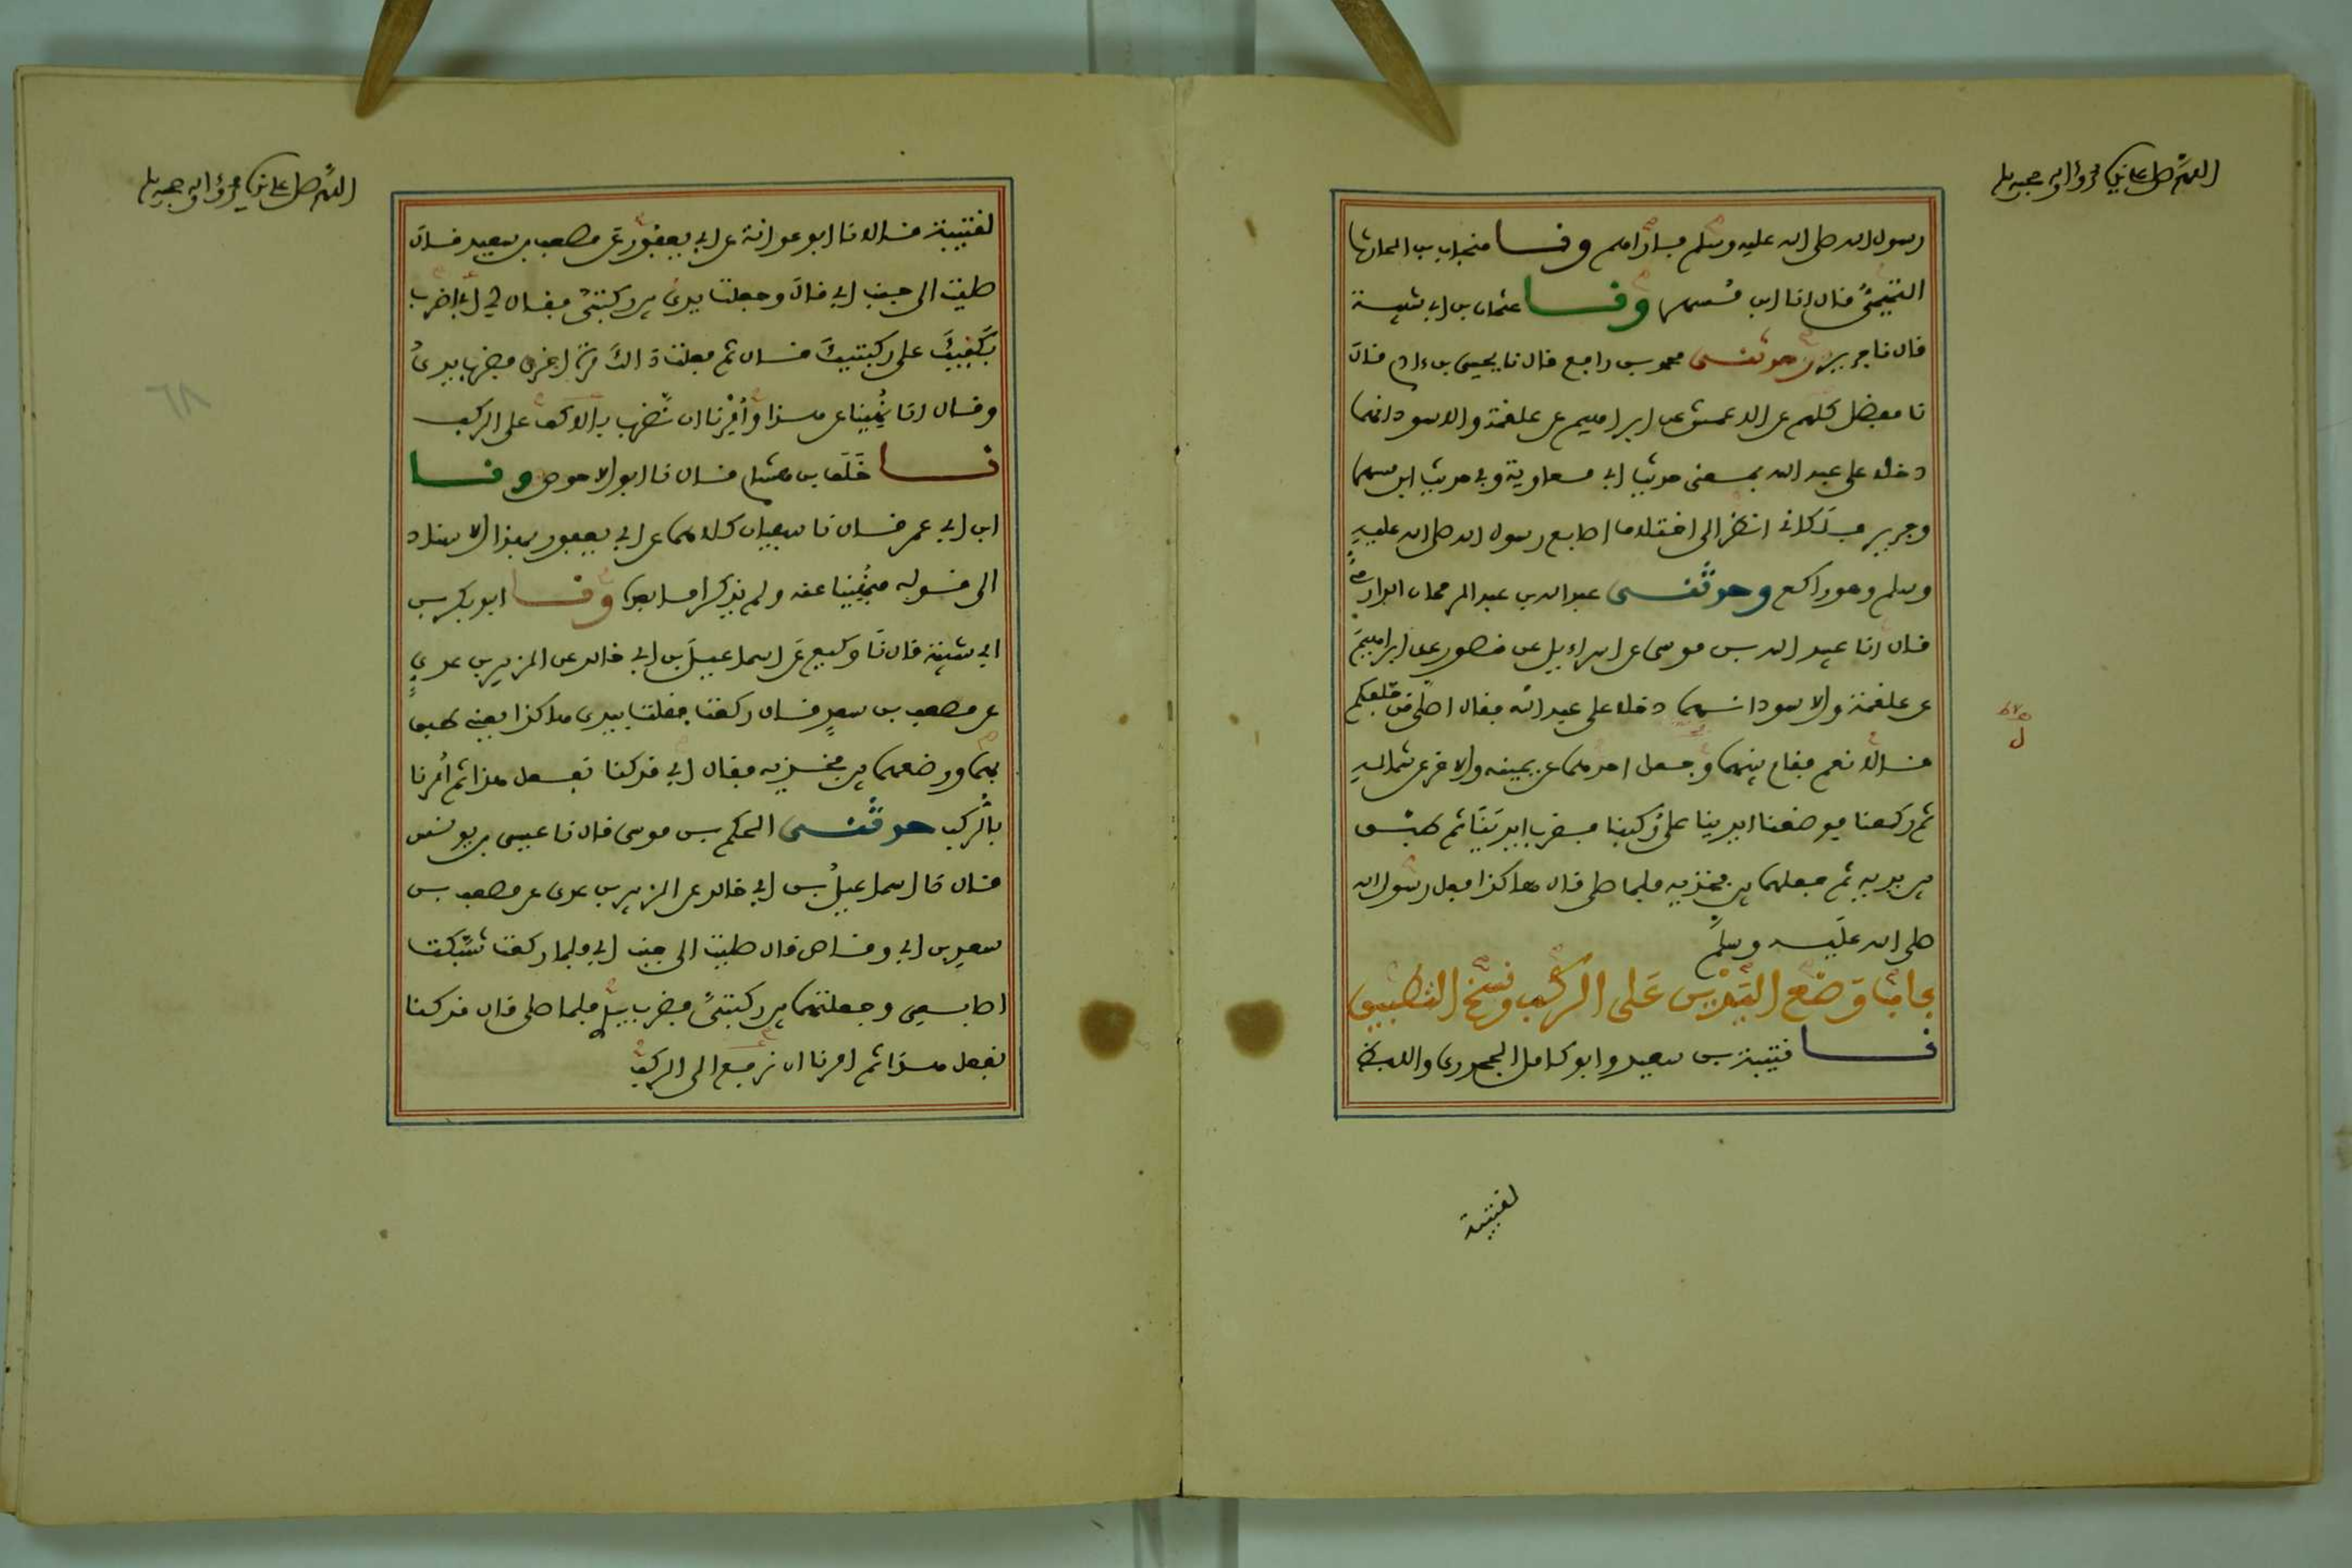 اللهم صل على نبينا محمد وآله وصحبه وسلم
رسول الله صلى الله عليه وسلم فأراهم ونا منجاب بن الحارث
التميمي قال انا ابن مسهر ونا عثمان بن ابي شيبة
قال نا جرير وحدثني محمد بن رافع قال نا يحيى بن ءادم قال
نا مفضل كلهم عن الاعمش عن ابراهيم عن علقمة والاسود انهما
دخلا على عبد الله بمعنى حديث ابي معاوية وفي حديث ابن مسهر
وجرير فلكاني انظر الى اختلاف اصابع رسول الله صلى الله عليه
وسلم وهو راكع وحدثني عبد الله بن عبد الرحمان الدارمي
قال انا عبيد الله بن موسى عن اسراءيل عن منصور عن ابراهيم
عن علقمة والاسود انهما دخلا على عبد الله فقال اصلى من خلفكم
قالا نعم فقام بينهما وجعل احدهما عن يمينه والاخر عن شماله
ثم ركعنا فوضعنا ايدينا على ركبنا فضرب ايدينا ثم طبق
بين يديه ثم جعلهما بين فخذيه فلما صلى قال هاكذا فعل رسول الله
صلى الله عليه وسلم
باب وضع اليدين على الركب ونسخ التطبيق
نا قتيبة بن سعيد وابو كامل الجحدري واللفظ
لقتيبة
اللهم صل على نبينا محمد وآله وصحبه وسلم
لقتيبة قالا نا ابو عوانة عن ابي يعفور عن مصعب بن سعد قال
صليت الى جنب ابي قال وجعلت يدي بين ركبتي فقال لي ابي اضرب
بكفيك على ركبتيك قال ثم فعلت ذالك مرة اخرى فضرب يدي
وقال انا نهينا عن هذا وأمرنا ان نضرب بالاكف على الركب
نا خلف بن هشام قال نا ابو الاحوص ونا
ابن ابي عمر قال نا سفيان كلاهما عن ابي يعفور بهذا الاسناد
الى قوله فنهينا عنه ولم يذكرا ما بعده ونا ابو بكر بن
ابي شيبة قال نا وكيع عن اسماعيل بن ابي خالد عن الزبير بن عدي
عن مصعب بن سعد قال ركعت فقلت بيدي هاكذا يعني طبق
بهما ووضعهما بين فخذيه فقال ابي قد كنا نفعل هذا ثم أمرنا
بالركب حدثني الحكم بن موسى قال نا عيسى بن يونس
قال نا اسماعيل بن ابي خالد عن الزبير بن عدي عن مصعب بن
سعد بن ابي وقاص قال صليت الى جنب ابي فلما ركعت شبكت
اصابعي وجعلتهما بين ركبتي فضرب يدي فلما صلى قال قد كنا
نفعل هذا ثم امرنا ان نرفع الى الركب
٦٨